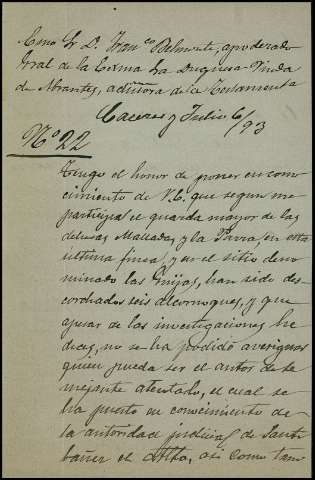 Exmo Sr D. Franco Belmonte, apoderado
Gral de la Exma Sra Duquesa Viuda
de Abrantes, admora de la Testamentª
Caceres y Julio 6/93
Nº 22
Tengo el honor de poner en cono
cimiento de V.E. que segun me
participa el guarda mayor de las
dehesas Malladas y la Parra, en esta
ultima finca, y en el sitio deno
minado las Guijas, han sido des
corchados seis alcornoques, y que
apesar de las investigaciones he
chas, no se ha podido averiguar
quien pueda ser el autor de se
mejante atentado, el cual se
ha puesto en conocimiento de
la autoridad judicial de Santi
bañez el Alto, asi como tam